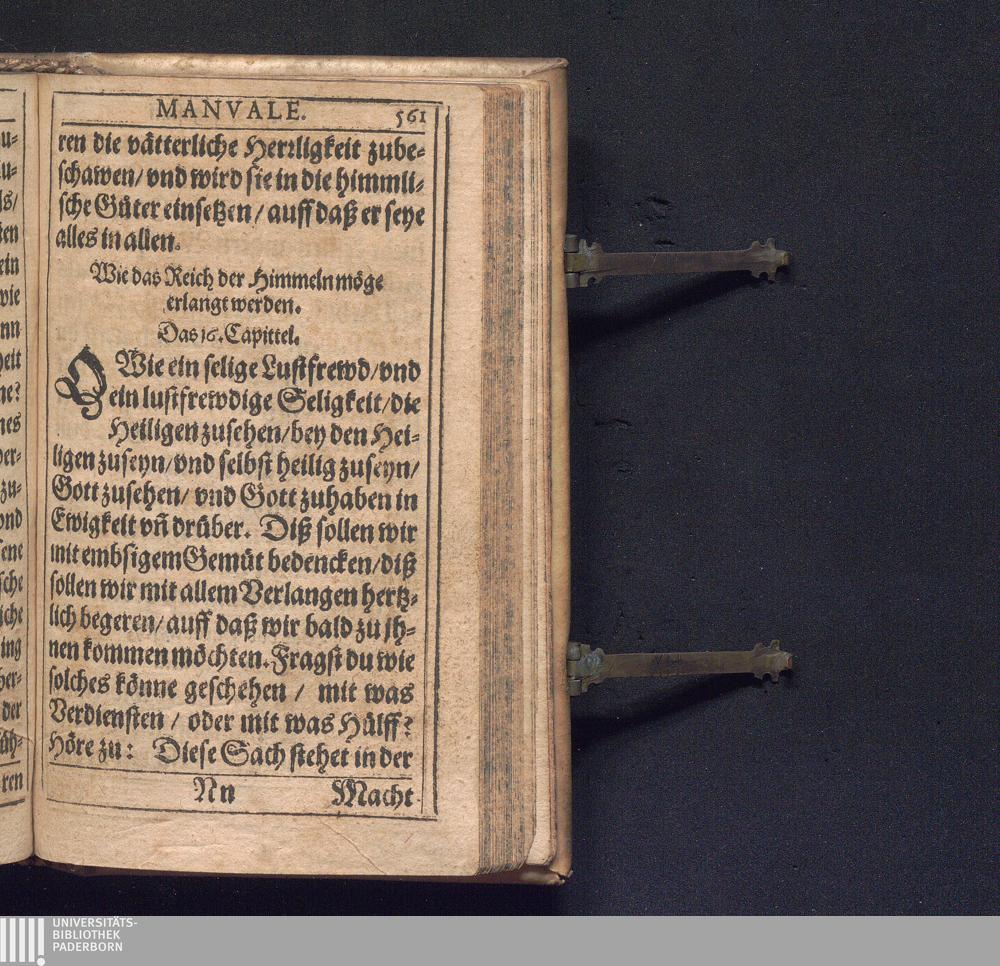 MANVALE. 561
ren die vätterliche Herꝛligkeit zube-
schawen/ vnd wird sie in die himmli-
sche Güter einsetzen/ auff daß er seye
alles in allen.
Wie das Reich der Himmeln möge
erlangt werden.
Das 16. Capittel.
O Wie ein selige Lustfrewd/ vnd
ein lustfrewdige Seligkeit/ die
Heiligen zusehen/ bey den Hei-
ligen zuseyn/ vnd selbst heilig zuseyn/
Gott zusehen/ vnd Gott zuhaben in
Ewigkeit vñ drüber. Diß sollen wir
mit embsigem Gemüt bedencken/ diß
sollen wir mit allem Verlangen hertz-
lich begeren/ auff daß wir bald zu jh-
nen kommen möchten. Fragst du wie
solches könne geschehen/ mit was
Verdiensten/ oder mit was Hülff?
Höre zu: Diese Sach stehet in der
Nn Macht
UNIVERSITÄTS-
BIBLIOTHEK
PADERBORN